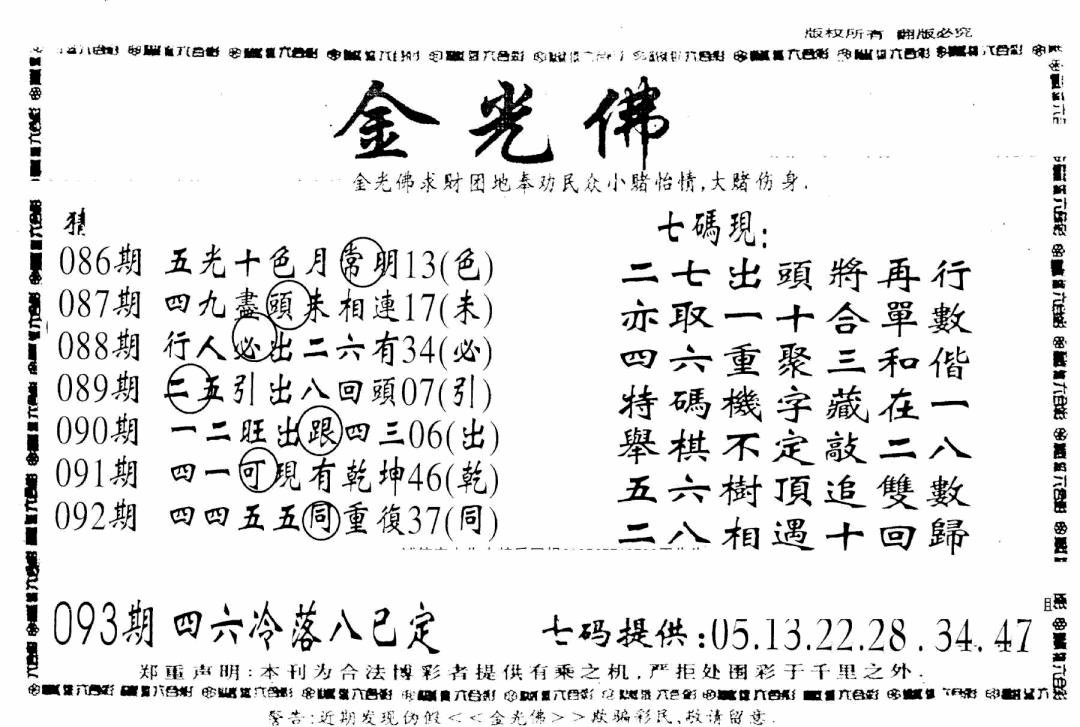 版权所有 翻版必究
金光佛
金光佛求财团地奉劝民众小赌怡情,大赌伤身.
猜
086期 五光十色月常明13(色)
087期 四九盡頭未相連17(未)
088期 行人必出二六有34(必)
089期 二五引出八回頭07(引)
090期 一二旺出跟四三06(出)
091期 四一可現有乾坤46(乾)
092期 四四五五同重復37(同)
七碼現:
二七出頭將再行
亦取一十合單數
四六重聚三和偕
特碼機字藏在一
舉棋不定敲二八
五六樹頂追雙數
二八相遇十回歸
093期 四六冷落八已定
七码提供:05.13.22.28.34.47
郑重声明:本刊为合法博彩者提供有乘之机,严拒处围彩于千里之外.
警告:近期发现伪假<<金光佛>>欺骗彩民,敬请留意.